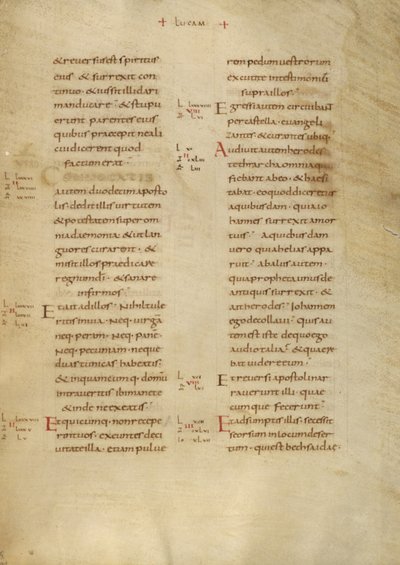 + LUCAM +
& reversus est spiritus
eius & surrexit con
tinuo & iussit illi dari
manducare & stupu
erunt parentes eius
quibus praecepit ne ali
cui dicerent quod
factum erat
CONVOCATIS
autem duodecim aposto
lis dedit illis virtutem
& potestatem super om
nia daemonia & ut lan
guores curarent &
misit illos praedicare
regnum di & sanare
infirmos
Et ait ad illos Nihil tule
ritis in via Neq virgā
neq peram Neq panē
Neq pecuniam neque
duas tunicas habeatis
& in quamcumq domū
intraveritis ibi manete
& inde ne exeatis
Et quicumq non recepe
rint vos exeuntes de ci
vitate illa etiam pulve
rem pedum vestrorum
excutite in testimoniū
supra illos
Egressi autem circuibant
per castella evangeli
zantes & curantes ubiq
Audivit autem herodes
tetrarcha omnia quae
fiebant ab eo & haesi
tabat eo quod diceretur
a quibusdam quia io
hannes surrexit a mor
tuis a quibusdam
vero quia helias appa
ruit ab aliis autem
quia propheta unus de
antiquis surrexit &
ait herodes Iohannen
ego decollavi Quis au
tem est iste de quo ego
audio talia & quaere
bat videre eum
Et reversi apostoli nar
raverunt illi quae
cumque fecerunt
Et adsumptis illis secessit
seorsum in locum deser
tum qui est bethsaidae